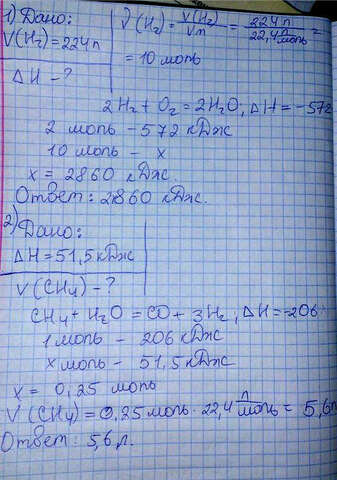 1) Дано: ν(H₂) = V(H₂)/Vm = 224 л/22,4 л/моль =
V(H₂) = 224 л
= 10 моль
ΔH - ?
2H₂ + O₂ = 2H₂O; ΔH = -572
2 моль - 572 кДж
10 моль - x
x = 2860 кДж.
Ответ: 2860 кДж.
2) Дано:
ΔH = 51,5 кДж
V(CH₄) - ?
CH₄ + H₂O = CO + 3H₂; ΔH = -206
1 моль - 206 кДж
x моль - 51,5 кДж
x = 0,25 моль
V(CH₄) = 0,25 моль · 22,4 л/моль = 5,6 л
Ответ: 5,6 л.